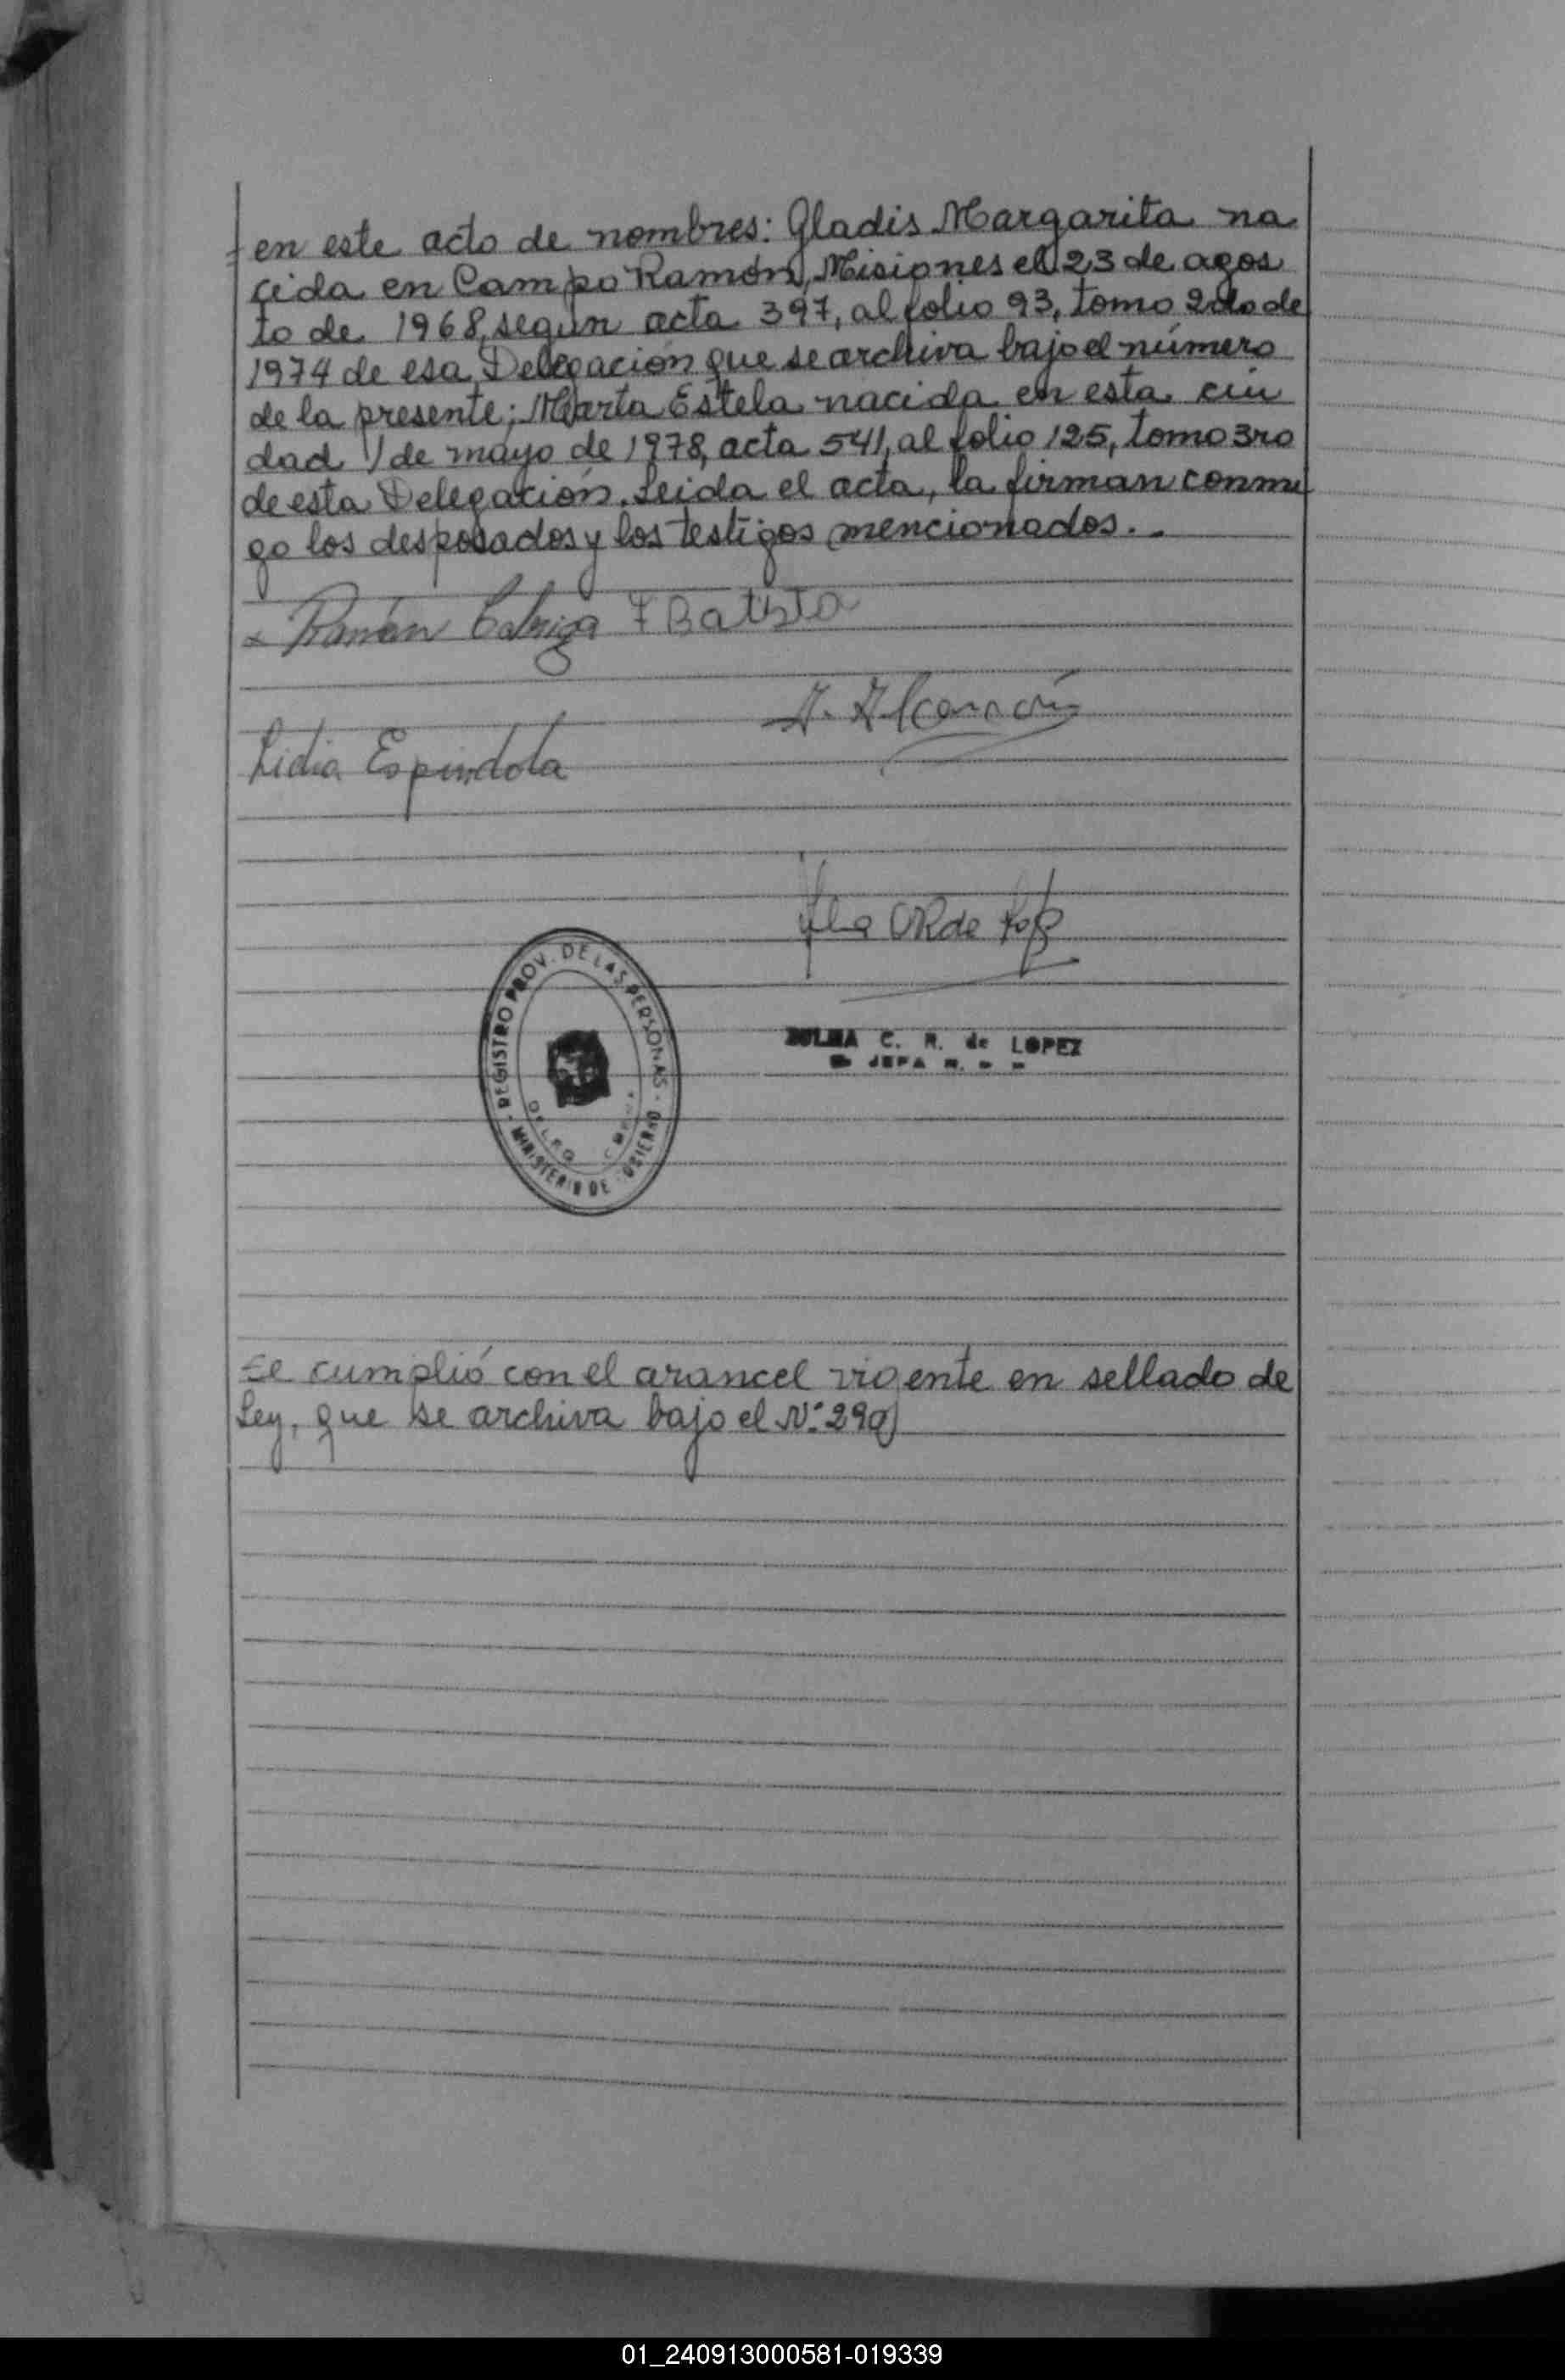 en este acto de nombres: Gladis Margarita na
cida en Campo Ramón, Misiones el 23 de agos
to de 1968, según acta 397, al folio 93, tomo 2do de
1974 de esa Delegación que se archiva bajo el número
de la presente; Marta Estela nacida en esta ciu
dad 1 de mayo de 1978, acta 541, al folio 125, tomo 3ro
de esta Delegación. Leida el acta, la firman conmi
go los desposados y los testigos mencionados.-
Ramón F Batista
A. Alarcón
Lidia Espindola
de
REGISTRO PROV. DE LAS PERSONAS
MINISTERIO DE GOBIERNO
C. R. de LOPEZ
JEFA R.
Se cumplió con el arancel vigente en sellado de
Ley, que se archiva bajo el Nº 290
01_240913000581-019339